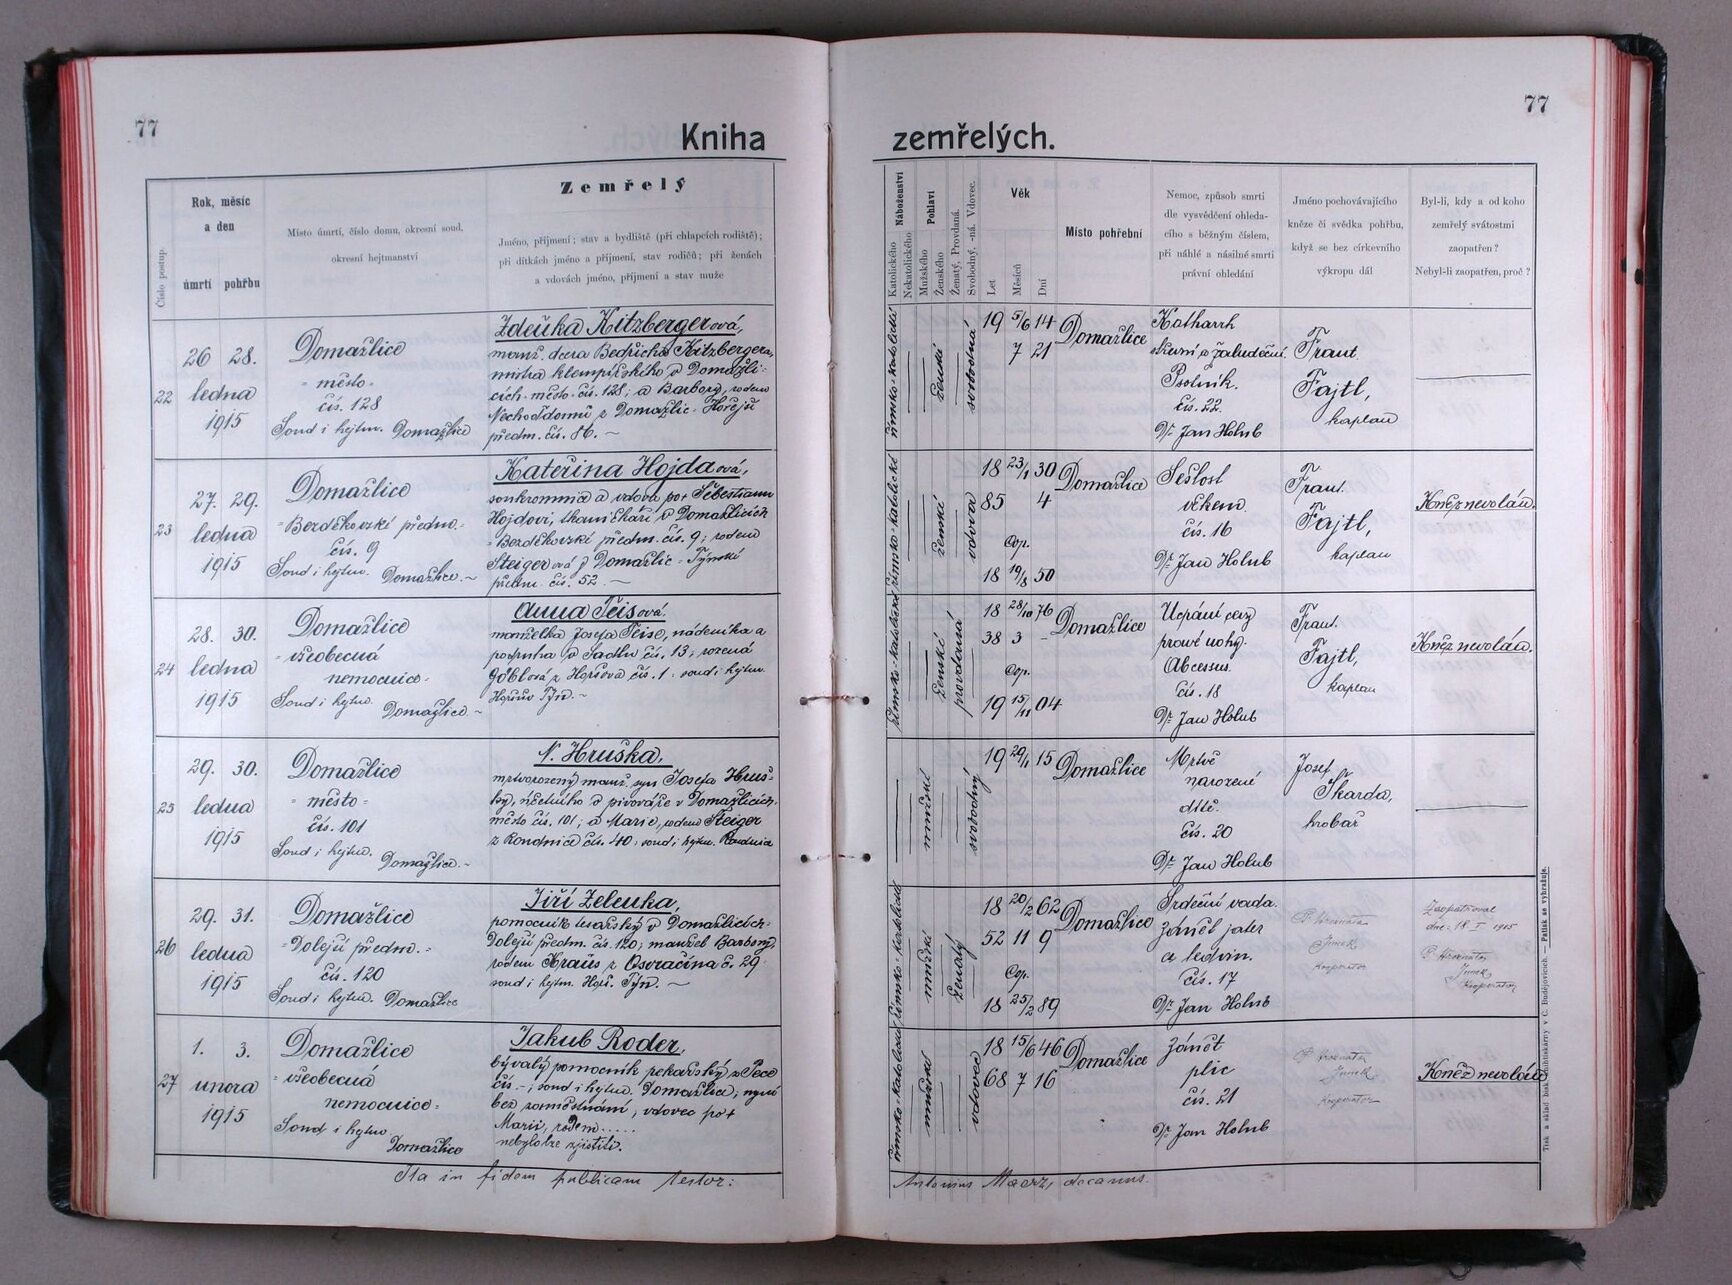 77
Kniha
Číslo postup.
Rok, měsíc
a den
úmrtí pohřbu
Místo úmrtí, číslo domu, okresní soud,
okresní hejtmanství
Zemřelý
Jméno, příjmení; stav a bydliště (při chlapcích rodiště);
při dítkách jméno a příjmení, stav rodičů; při ženách
a vdovách jméno, příjmení a stav muže
22
26 28.
ledna
1915
Domažlice
- město -
čís. 128
Soud i hejtm. Domažlice
Zdeňka Kitzbergerová,
manž. dcera Bedřicha Kitzbergera,
mistra klempířského v Domažli-
cích - město - čís. 128; a Barbory, rodem
z Domažlic - Hořejší
předm. čís. 86. ~
23
27. 29.
ledna
1915
Domažlice
- Bezděkovské předm. -
čís. 9
Soud i hejtm. Domažlice. ~
Kateřina Hojdaová,
soukromnice a vdova po + Šebestianu
Hojdovi, tkaničkáři v Domažlicích
- Bezděkovské předm. čís. 9; rodem
Steigerová z Domažlic - Týnské
předm. čís. 52. ~
24
28. 30.
ledna
1915
Domažlice
- všeobecná
nemocnice -
Soud i hejtm.
Domažlice. ~
Anna Teisová.
manželka Josefa Teise, nádeníka a
podruha v Sadlu čís. 13; rozená
Göblová z Horšova čís. 1 - soud i hejtm.
Horšův Týn. ~
25
29. 30.
ledna
1915
Domažlice
- město -
čís. 101
Soud i hejtm.
Domažlice. ~
N. Hruška,
mrtvorozený manž. syn Josefa Hruš-
ky, účetního v pivováře v Domažlicích -
město čís. 101; a Marie, rodem Steiger
z Roudnice čís. 40; soud i hejtm. Roudnice
26
29. 31.
ledna
1915
Domažlice
- Dolejší předm. -
čís. 120
Soud i hejtm. Domažlice
Jiří Zelenka,
pomocník tesařský v Domažlicích -
Dolejší předm. čís. 120; manžel Barbory,
rodem Kraus z Osvračína č. 29 -
soud i hejtm. Horš. Týn. ~
27
1. 3.
února
1915
Domažlice
- všeobecná
nemocnice -
Soud i hejtm.
Domažlice
Jakub Roder,
bývalý pomocník pekařský z Pece
čís. - ; soud i hejtm. Domažlice; nyní
bez zaměstnání, vdovec po +
Marii, rodem.....
nebylo lze zjistiti.
Ita in fidem publicam testor:
77
zemřelých.
Náboženství
Katolického
Nekatolického
Pohlaví
Mužského
Ženského
Ženatý, Provdaná.
Svobodný, -ná. Vdovec.
Věk
Let
Měsíců
Dní
Místo pohřební
Nemoc, způsob smrti
dle vysvědčení ohleda-
cího s běžným číslem,
při náhlé a násilné smrti
právní ohledání
Jméno pochovávajícího
kněze či svědka pohřbu,
když se bez církevního
výkropu dál
Byl-li, kdy a od koho
zemřelý svátostmi
zaopatřen?
Nebyl-li zaopatřen, proč?
římsko-katolické
ženské
svobodná
19 5/6 14
7 21
Domažlice
Katharrh
střevní a žaludeční.
Psotník.
čís. 22.
Dr. Jan Holub
Frant.
Fajtl,
kaplan
římsko-katolické
ženské
vdova
18 23/1 30
85 4
Cop.
18 19/8 50
Domažlice
Sešlost
věkem.
čís. 16
Dr. Jan Holub
Frant.
Fajtl,
kaplan
Kněz nevolán.
římsko-katolické
ženské
provdaná
18 28/10 76
38 3 -
Cop.
19 15/11 04
Domažlice
pravé nohy.
Abcessus.
čís. 18
Dr. Jan Holub
Frant.
Fajtl,
kaplan
Kněz nevolán.
mužské
svobodný
19 29/1 15
Domažlice
Mrtvě
narozené
dítě.
čís. 20
Dr. Jan Holub
Josef
Škarda,
hrobař
římsko-katolické
mužské
ženatý
18 20/2 62
52 11 9
Cop.
18 25/2 89
Domažlice
Srdeční vada.
zánět jater
a ledvin.
čís. 17
Dr. Jan Holub
Jinek
Kooperator
Zaopatřoval
dne: 18. I. 1915
Jinek
Kooperator
římsko-katolické
mužské
vdovec
18 15/6 46
68 7 16
Domažlice
zánět
plic
čís. 21
Dr. Jan Holub
Jinek
Kooperator
Kněz nevolán
Antonius Maerz, decanus.
Tisk a sklad bisk. knihtiskárny v Č. Budějovicích. — Patisk se vyhražuje.